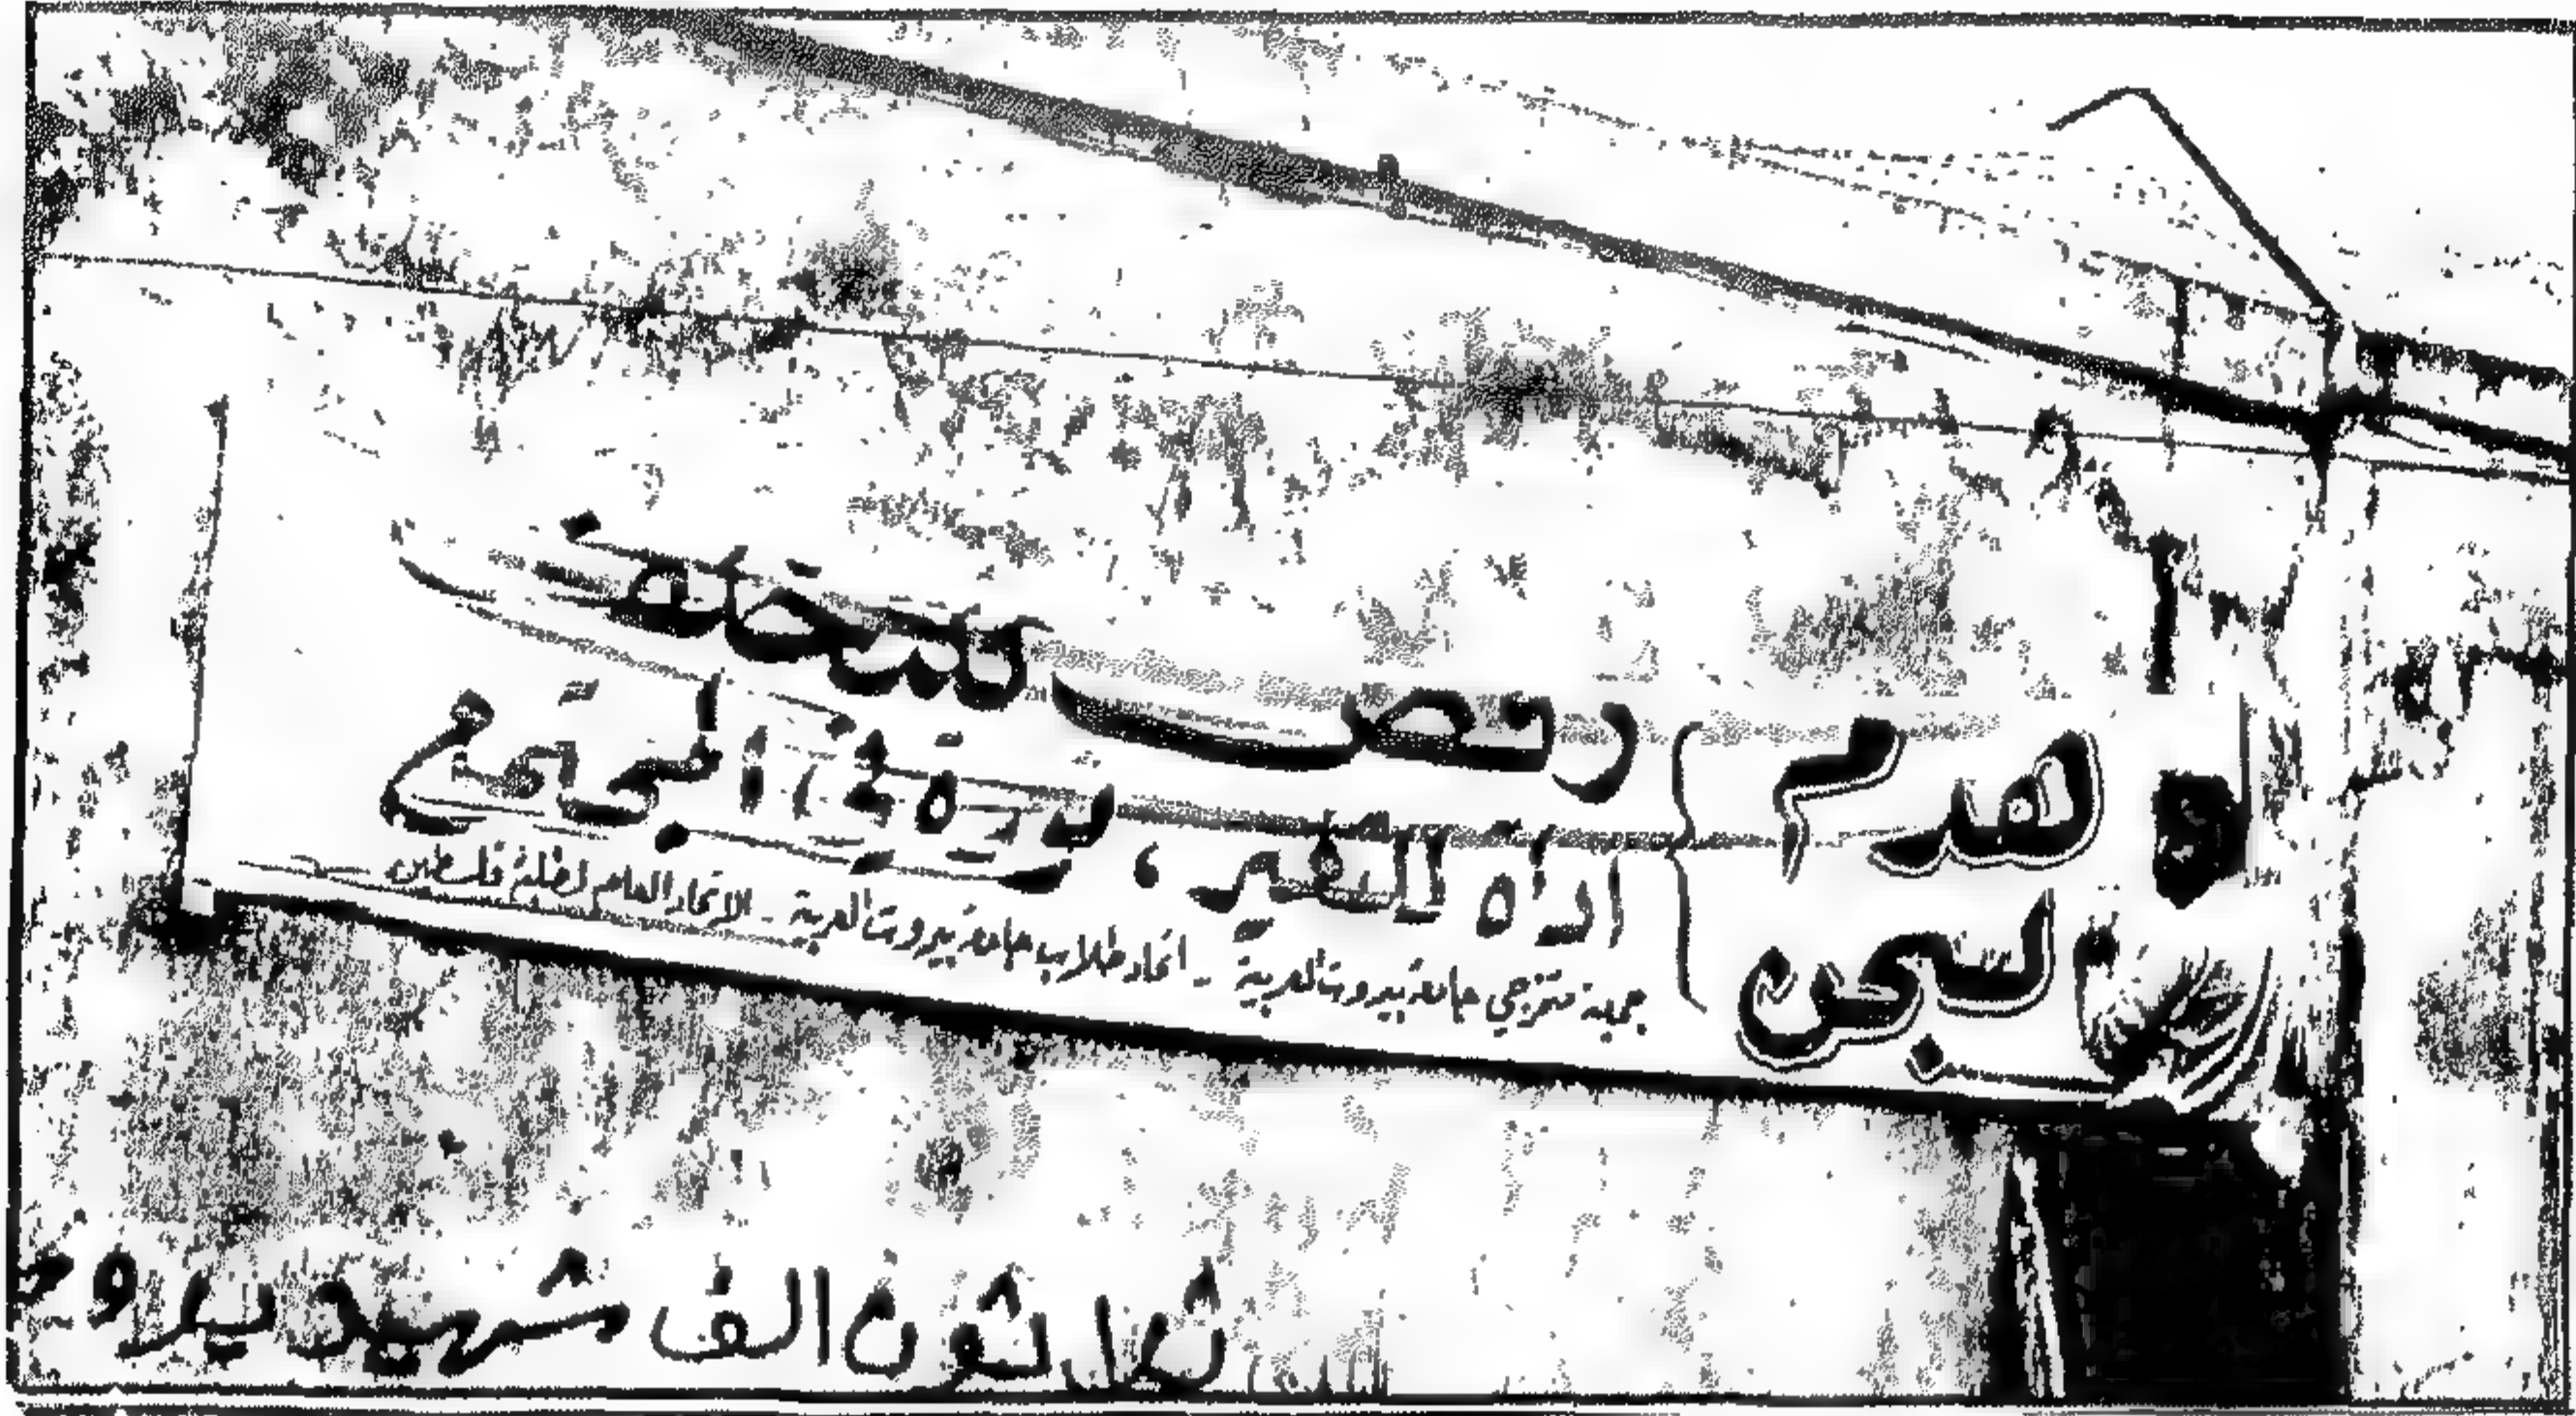 هدم
السجن
رفض للتخلف
اداة للتغيير ، ثورة في المجتمع
جمعية متخرجي جامعة بيروت العربية - اتحاد طلاب جامعة بيروت العربية - الاتحاد العام لطلبة فلسطين
ثلاثون الف شهيد